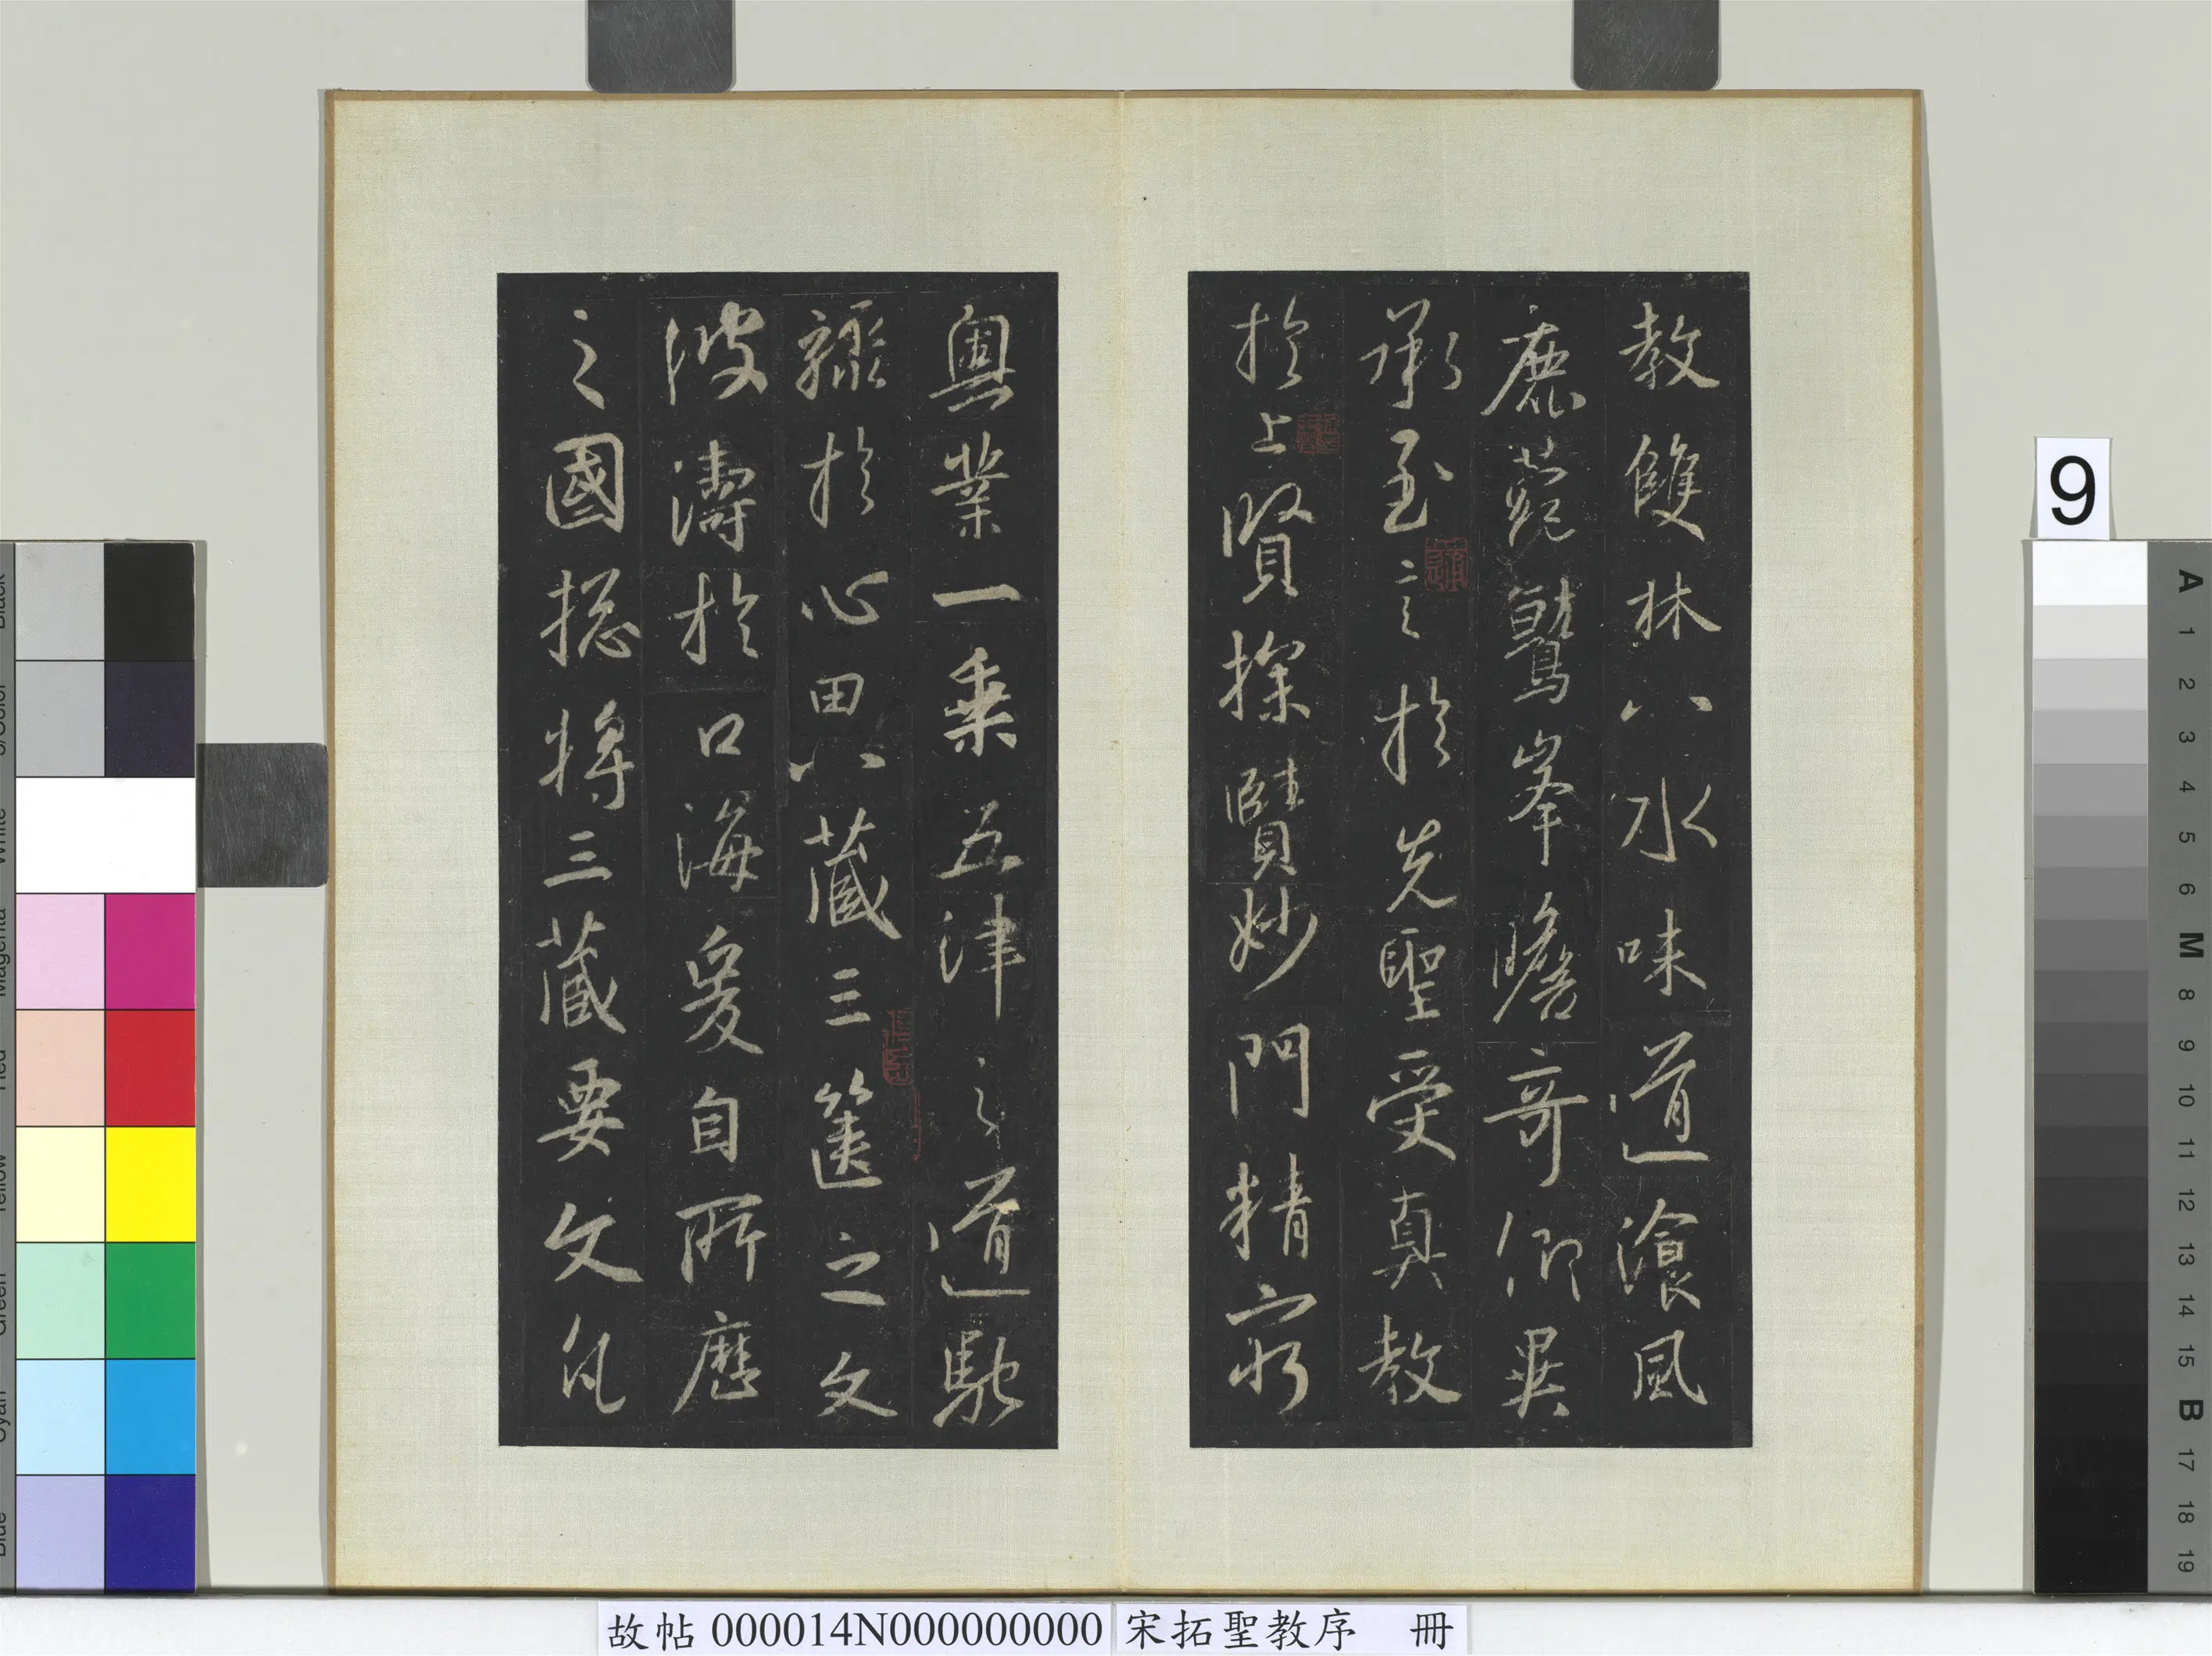 教雙林八水味道湌風
鹿菀鷲峯瞻奇仰異
承至言於先聖受真教
於上賢探賾妙門精窮
奧業一乘五律之道馳
驟於心田八藏三篋之文
波濤於口海爰自所歷
之國揔將三藏要文凡
故帖 000014N000000000
宋拓聖教序 冊
9
A 1 2 3 4 5 6 M 8 9 10 11 12 13 14 15 B 17 18 19